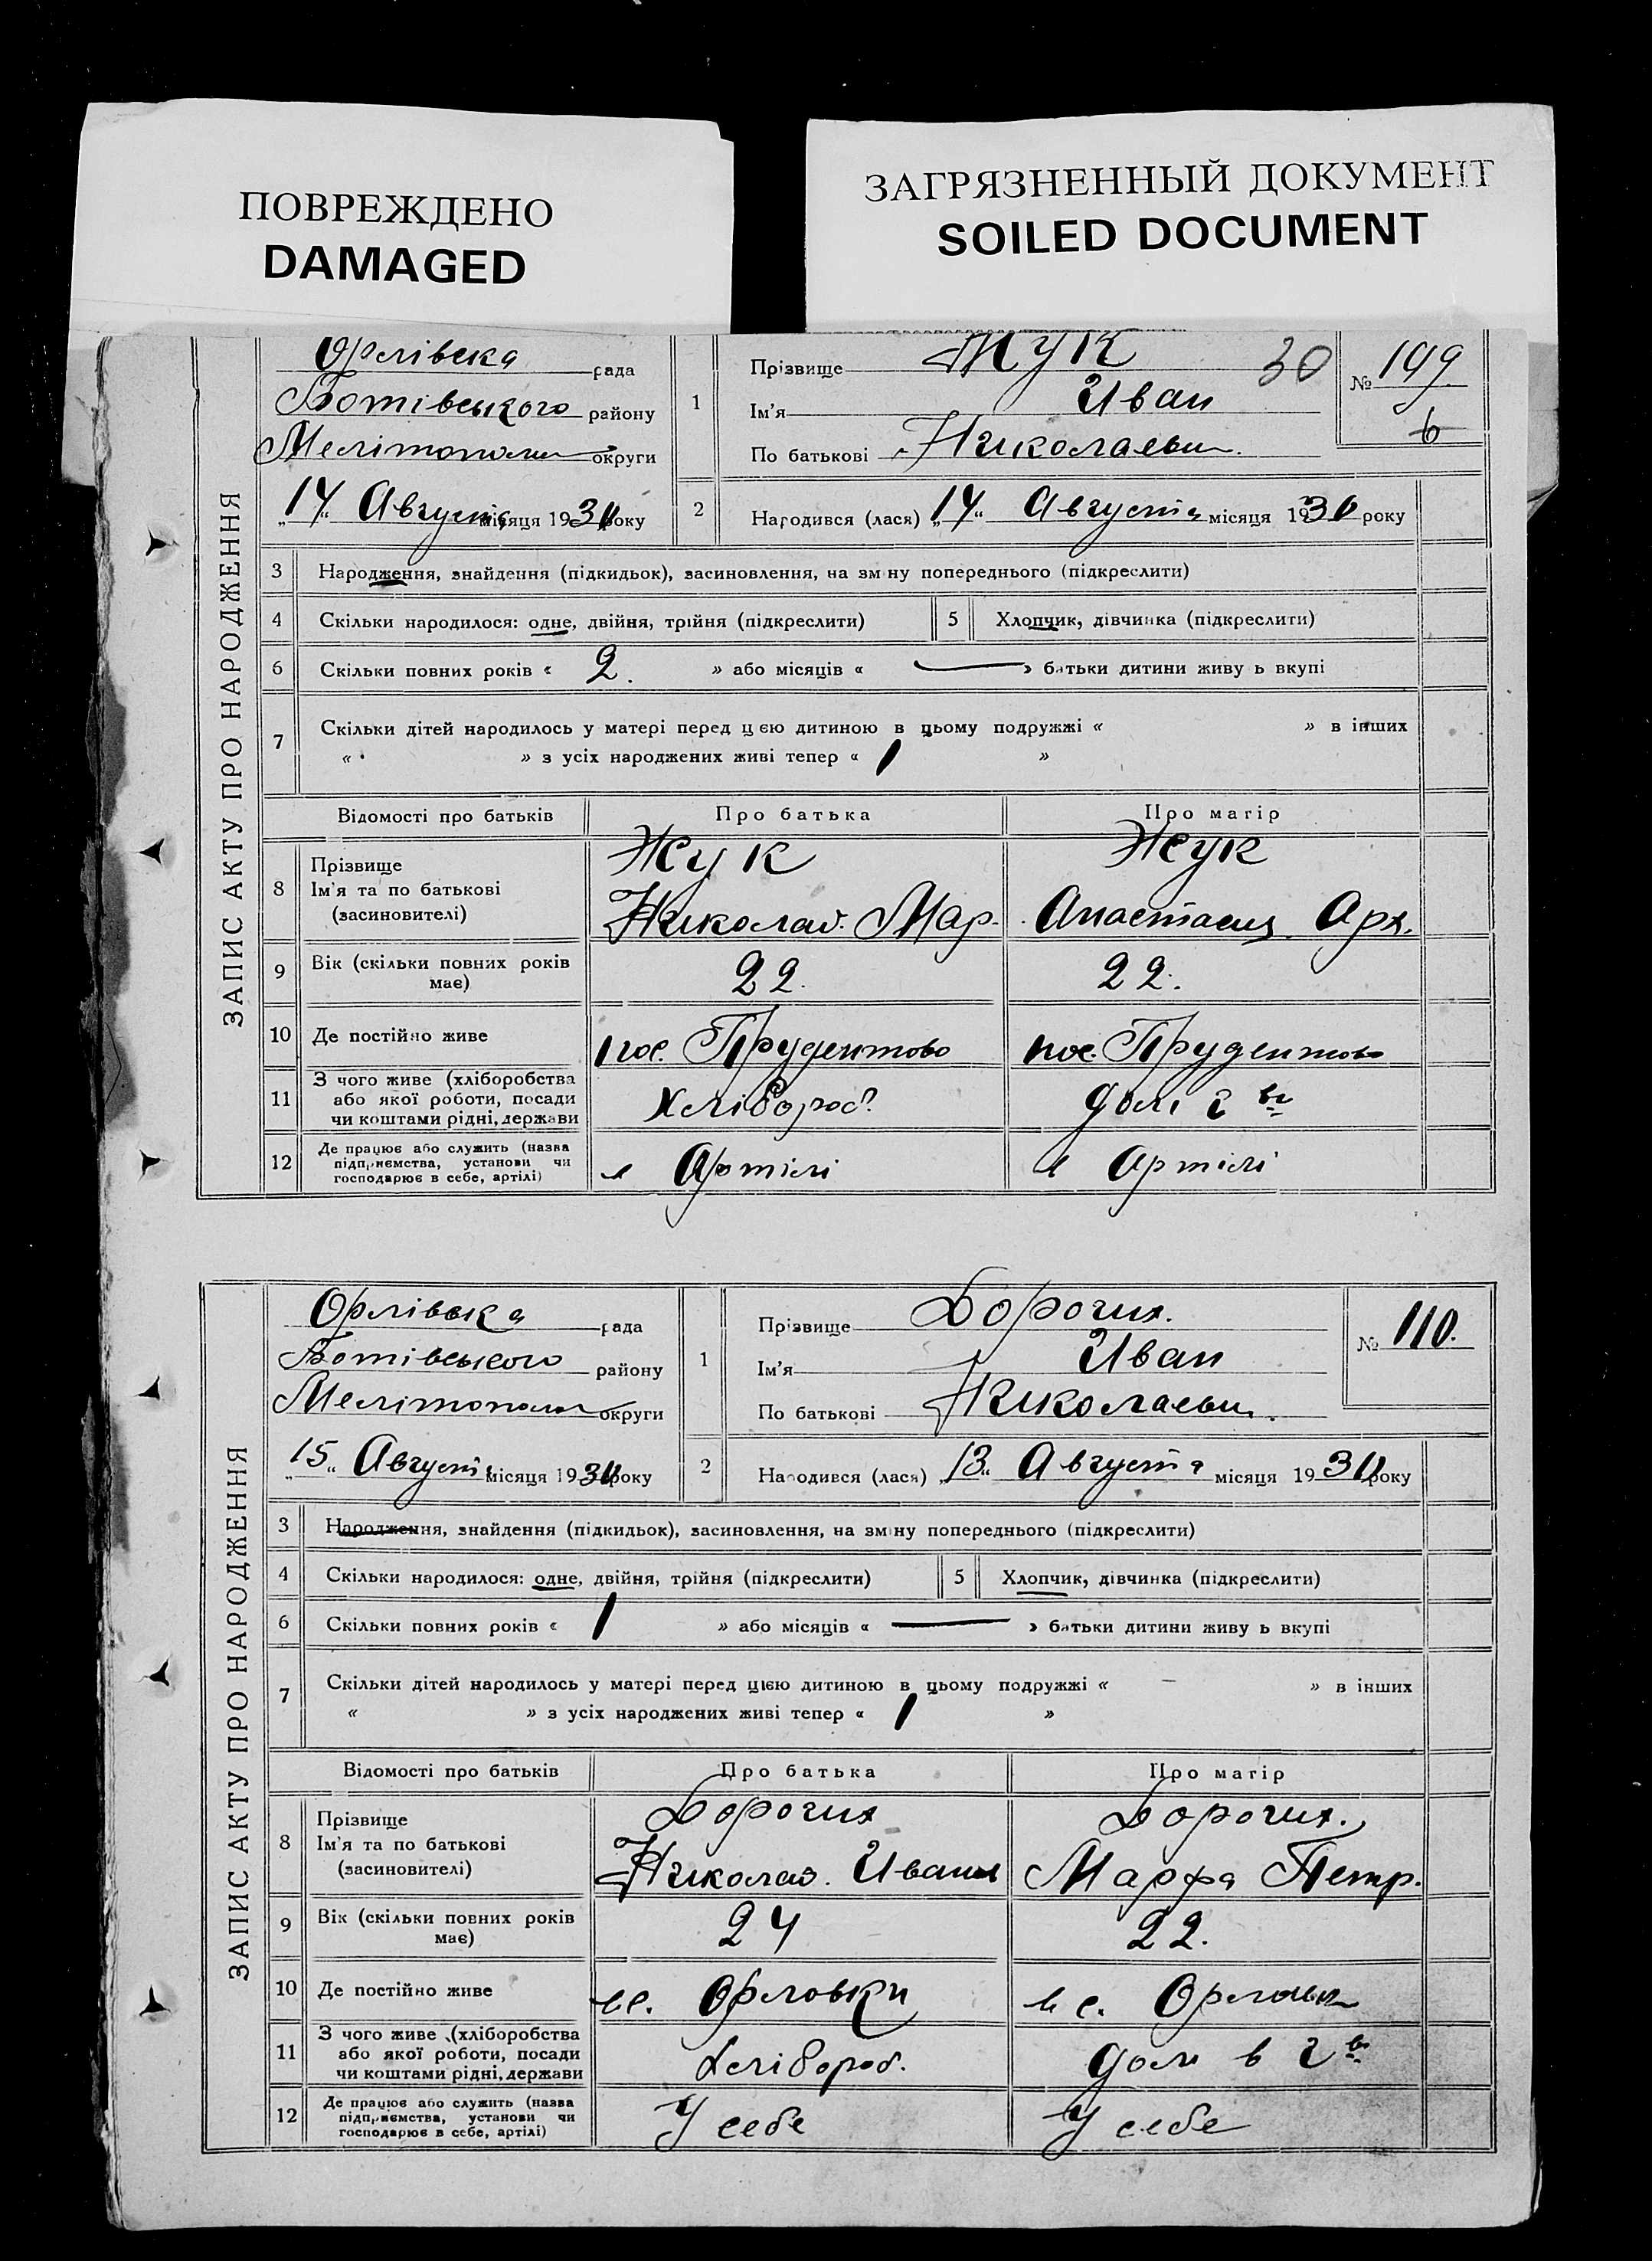 ПОВРЕЖДЕНО
DAMAGED
ЗАГРЯЗНЕННЫЙ ДОКУМЕНТ
SOILED DOCUMENT
ЗАПИС АКТУ ПРО НАРОДЖЕННЯ
Орлівска рада
Ботівського району
Мелітополи округи
„14“ Августа місяця 1930 року
1
Прізвище Жук 30
Ім'я Иван
По батькові Николаевич
№ 109
6
2 Народився (лася) „14“ Августа місяця 1930 року
3 Народження, знайдення (підкидьок), засиновлення, на зміну попереднього (підкреслити)
4 Скільки народилося: одне, двійня, трійня (підкреслити) 5 Хлопчик, дівчинка (підкреслити)
6 Скільки повних років « 2. » або місяців « — » батьки дитини живу ь вкупі
7 Скільки дітей народилось у матері перед цією дитиною в цьому подружжі « » в інших
« » з усіх народжених живі тепер « 1 »
Відомості про батьків Про батька Про матір
8 Прізвище Жук Жук
Ім'я та по батькові
(засиновителі) Николай Мар. Анастасия Арх.
9 Вік (скільки повних років має) 22. 22.
10 Де постійно живе пос. Прудентово пос. Прудентово
11 З чого живе (хліборобства
або якої роботи, посади
чи коштами рідні, держави Хлібороб. дом г во
12 Де працює або служить (назва
підприємства, установи чи
господарює в себе, артілі) в Артілі в Артілі
ЗАПИС АКТУ ПРО НАРОДЖЕННЯ
Орлівска рада
Ботівського району
Мелітополи округи
„15“ Августа місяця 1930 року
1
Прізвище Дорогих.
Ім'я Иван
По батькові Николаевич
№ 110.
2 Народився (лася) „13“ Августа місяця 1930 року
3 Народження, знайдення (підкидьок), засиновлення, на зміну попереднього (підкреслити)
4 Скільки народилося: одне, двійня, трійня (підкреслити) 5 Хлопчик, дівчинка (підкреслити)
6 Скільки повних років « 1 » або місяців « — » батьки дитини живу ь вкупі
7 Скільки дітей народилось у матері перед цією дитиною в цьому подружжі « – » в інших
« » з усіх народжених живі тепер « 1 »
Відомості про батьків Про батька Про матір
8 Прізвище Дорогих Дорогих.
Ім'я та по батькові
(засиновителі) Николай Иван Марфа Петр.
9 Вік (скільки повних років має) 24 22.
10 Де постійно живе в с. Орловки в с. Орловки
11 З чого живе (хліборобства
або якої роботи, посади
чи коштами рідні, держави Хлібороб. дом в г во
12 Де працює або служить (назва
підприємства, установи чи
господарює в себе, артілі) У себе У себе